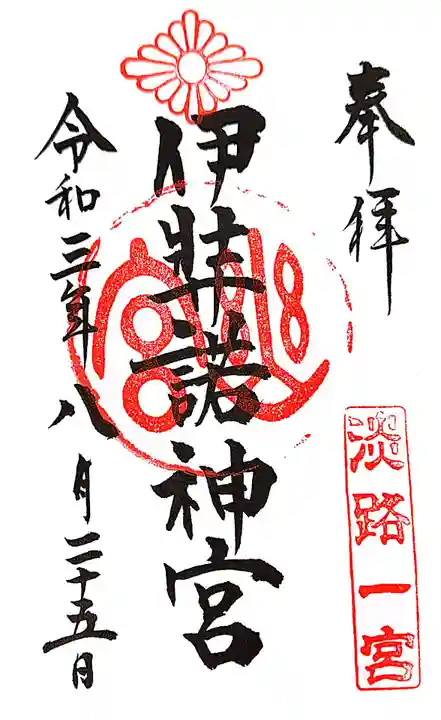 奉拝
淡路一宮
伊弉諾神宮
令和三年八月二十五日